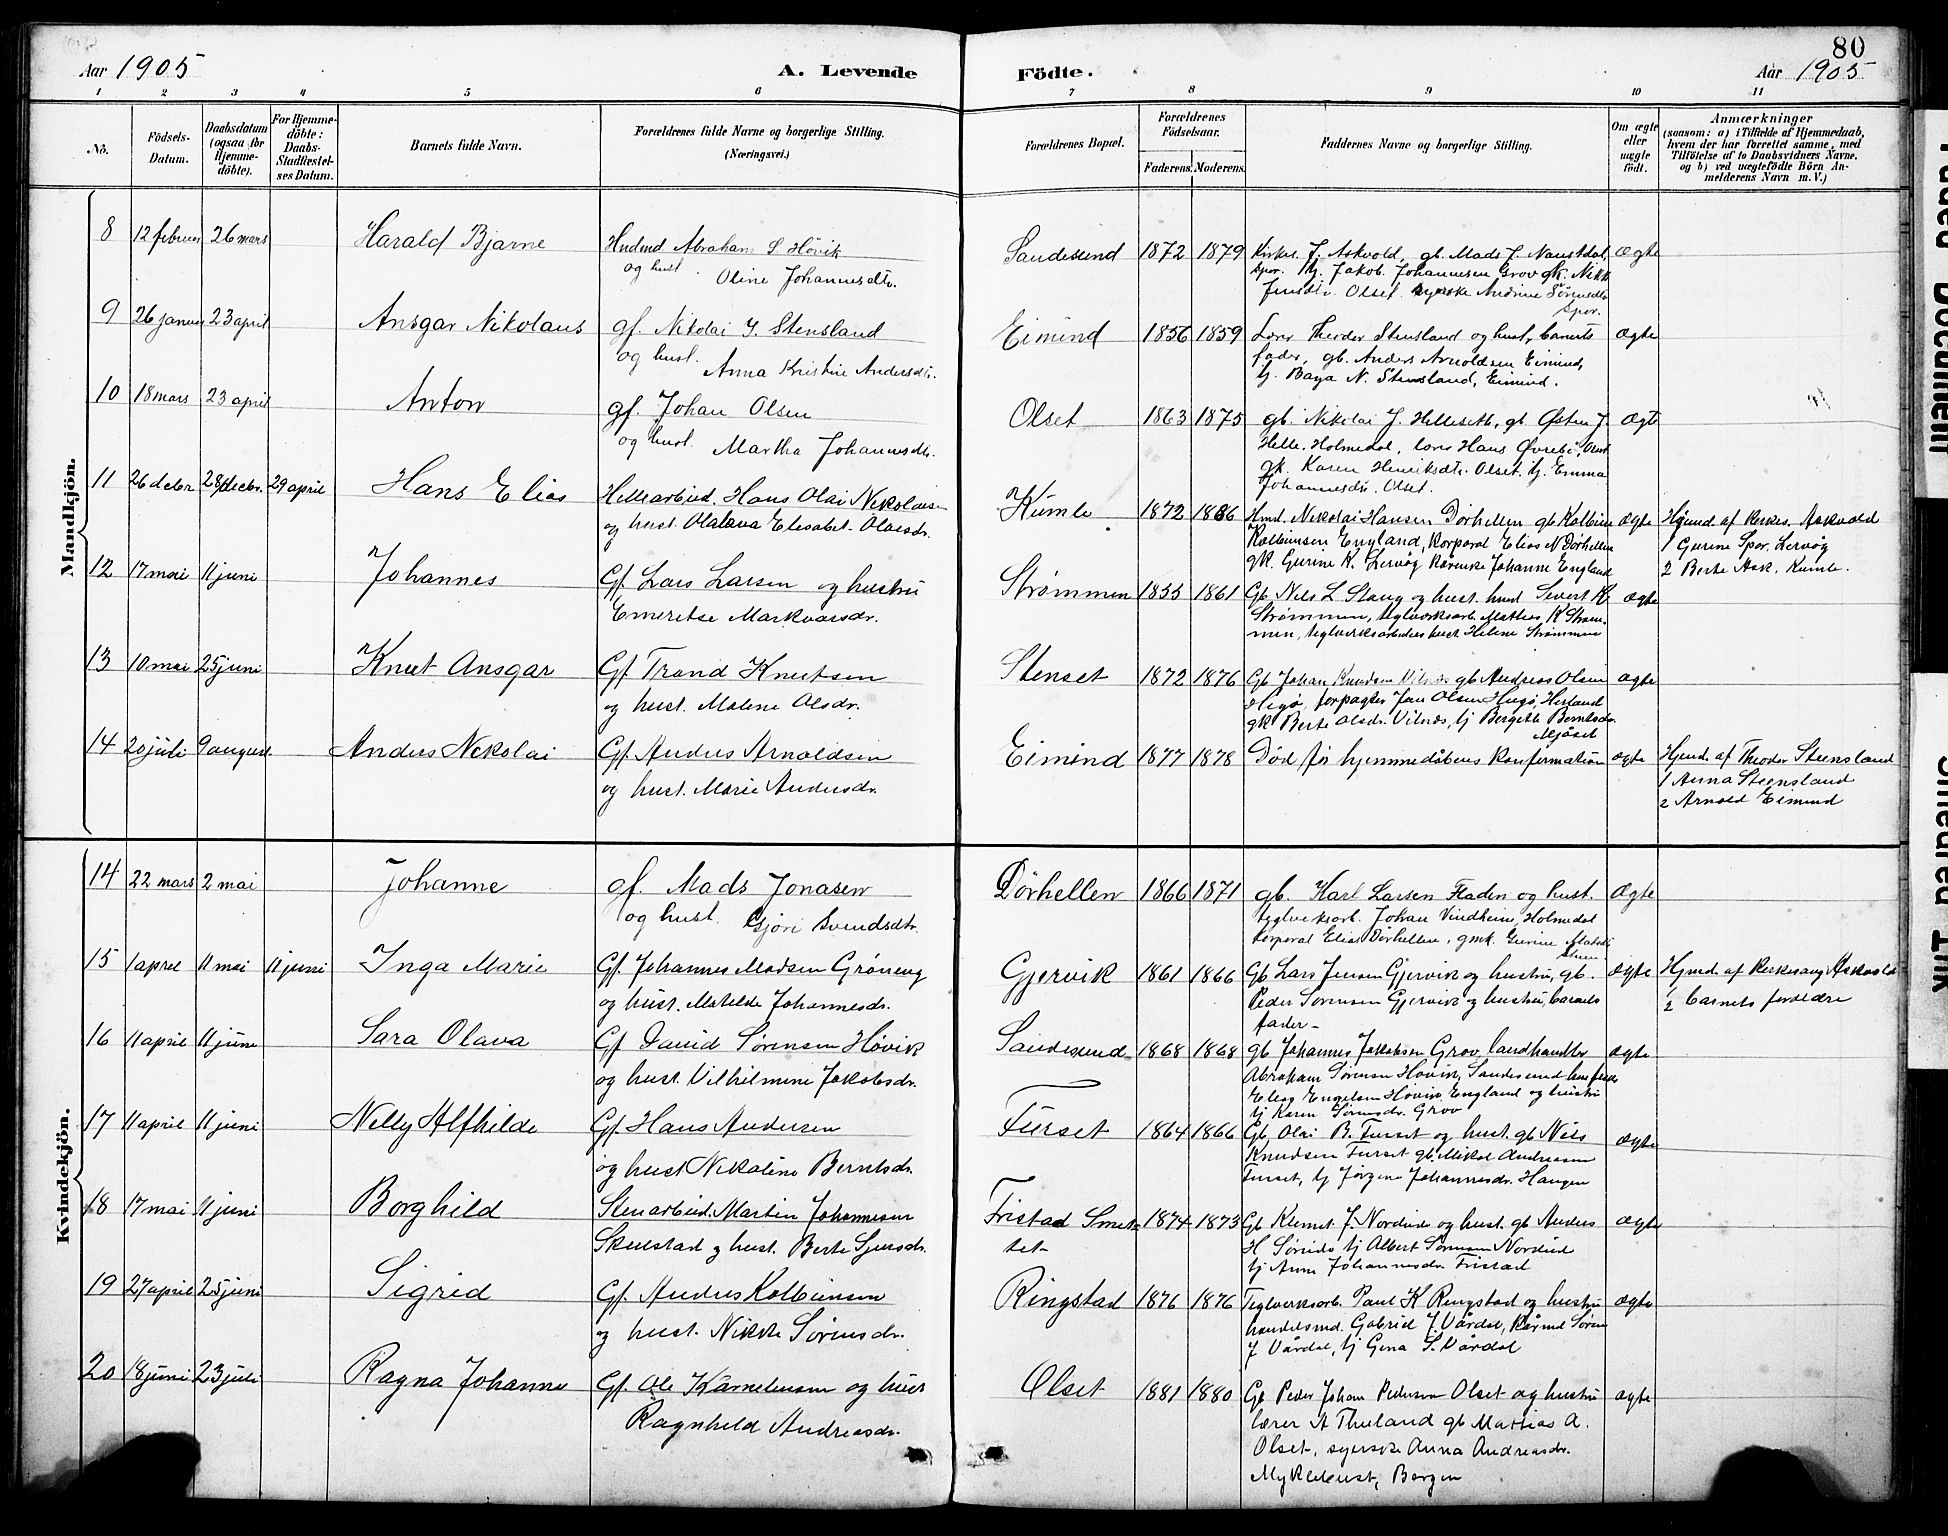 Aar 1905
A. Levende
Födte.
80
Aar 1905
1 2 3 4 5 6 7 8 9 10 11
No.
Födsels-Datum.
Daabsdatum (ogsaa for Hjemme-döbte).
For Hjemme-döbte: Daabs-Stadfæstel-ses Datum.
Barnets fulde Navn.
Forældrenes fulde Navne og borgerlige Stilling.
(Næringsvei.)
Forældrenes Bopæl.
Forældrenes Födselsaar.
Faderens. Moderens.
Faddernes Navne og borgerlige Stilling.
Om ægte eller uægte födt.
Anmærkninger
(saasom: a) i Tilfælde af Hjemmedaab,
hvem der har forrettet samme, med
Tilföielse af to Daabsvidners Navne,
og b) ved uægtefödte Börn An-
melderens Navn m. V.)
Mandkjön.
8 12 februar 26 mars Harald Bjarne
Abraham S. Høvik
og hust. Oline Johannesdtr.
Sandesund 1872 1879
Kirkes. J. Askvold, gb. Mads J. Naustdal,
Jakob Johannesen Grov gk. Nikk
Olset. syerske Andrine Sørensdtr
Spor.
ægte
9 26 januar 23 april Ansgar Nikolaus
gf. Nikolai J. Stensland
og hust. Anna Kristine Andersdtr.
Eimind 1856 1859
Lærer Theodor Stensland og hust, barnets
fader, gb. Anders Arnoldsen Eimind,
tj. N. Stensland, Eimind.
ægte
10 18 mars 23 april Anton
gf. Johan Olsen
og hust. Martha Johannesdtr.
Olset 1863 1875
gb. Nikolai J. Hellesett, gb. Østen J.
Helle, Holmedal, lærer Hans Øvrebø, Olset
gk. Karen Henriksdtr. Olset. tj. Emma
Johannesdtr. Olset.
ægte
11 26 decbr 28 decbr. 29 april Hans Elias
Hellearbeid. Hans Olai Nikolaisen
og hust. Olalava Elisabet Olaesdr.
Kumle 1872 1866
Hmd. Nikolai Hansen Dørhellen gb Kolbein
Kolbeinsen England, korporal Elias N Dørhellen
gk. Gurine K. Lervøg Johanne England
ægte
Hjemd. af kirkes. Askvold
1 Gurine Spor. Lervøg
2 Berte Ask. Kumle.
12 17 mai 11 juni Johannes
Gf. Lars Larsen og hustru
Emeretse Markvarsdr.
Strømmen 1855 1861
Gb. Nils L Stang og hust. hmd Sivert K.
Strømmen, teglverksarb. Mathias K Strøm-
men, teglverksarbeiders hust Helene Strømmen
ægte
13 10 mai 25 juni Knut Ansgar
Gf. Trond Knutsen
og hust. Malene Olsdr.
Stenset 1872 1876
Gb. Johan Knudsen Vilnes gb Andreas Olsen
forpagter Jan Olsen Hegø, Herland
gk Berte Olsdr. Vilnes, tj Bergitte Berntsdr.
Mjøset
ægte
14 20 juli 9 august Anders Nikolai
Gf. Anders Arnoldsen
og hust. Marie Andersdr.
Eimind 1877 1878
Død før hjemmedåbens konfirmation
ægte
Hjmd. af Theodor Steensland
1 Anna Steensland
2 Arnold Eimind
Kvindekjön.
14 22 mars 2 mai Johanne
gf. Mads Jonasen
og hust. Gjøri Svendsdtr.
Dørhellen 1866 1871
gb. Karl Larsen Fladen og hust.
teglverksarb. Johan Vindheim, Holmedal
korporal Elias Dørhellen, gmk. Gurine
ægte
15 1 april 11 mai 11 juni Inga Marie
Gf. Johannes Madsen Grønevg
og hust. Matilde Johannesdr.
Gjervik 1861 1866
Gb. Lars Jensen Gjervik og hustru, gb.
Peder Sørensen Gjervik og hustru, barnets
fader
ægte
Hjmd. af kirkesang. Askvold
1/2 barnets foreldre
16 11 april 11 juni Sara Olava
Gf David Sørensen Høvik
og hust. Vilhelmine Jakobsdr.
Sandesund 1868 1868
gb Johannes Jakobsen Grov, landhandler
Abraham Sørensen Høvik, Sandesund
Elias Engelsen Høvik, England og hustru
tj Karen Sørensdr. Grov
ægte
17 11 april 11 juni Nelly Alfhilde
Gf. Hans Andersen
og hust Nikoline Berntsdr.
Furset 1864 1866
Gb. Olai B. Furset og hust. gb Nils
Knudsen Furset gb. Mikal Andreasen
Furset, tj Jørgine Johannesdr. Haugen
ægte
18 17 mai 11 juni Borghild
Stenarbeid. Martin Johannesen
Skeistad g hust. Berte Sjursdr.
Fristad Smet-
tet 1874 1873
Gb Klemet J. Nordeide og hust. gb Anders
H Søreide tj Albert Sørensen Nordeid
tj Anne Johannesdr Fristad
ægte
19 27 april 25 juni Sigrid
Gf. Anders Kolbeinsen
og hust. Nikke Sørensdr.
Ringstad 1876 1876
Teglverksarb. Paul K Ringstad og hustru
handelsmd. Gabriel J. Vårdal, Søren
J Vårdal, tj Gena S. Vårdal
ægte
20 18 juni 23 juli Ragna Johanne
Gf. Ole Karneliussen og hust
Ragnhild Andreasdr.
Olset 1881 1880
Gb Peder Johan Pedersen Olset og hustru
lærer A Thuland gb Mathias A.
Olset, syerske Anna Andreasdr.
Myklebust, Bergen
ægte
Faded Document
Smeared Ink